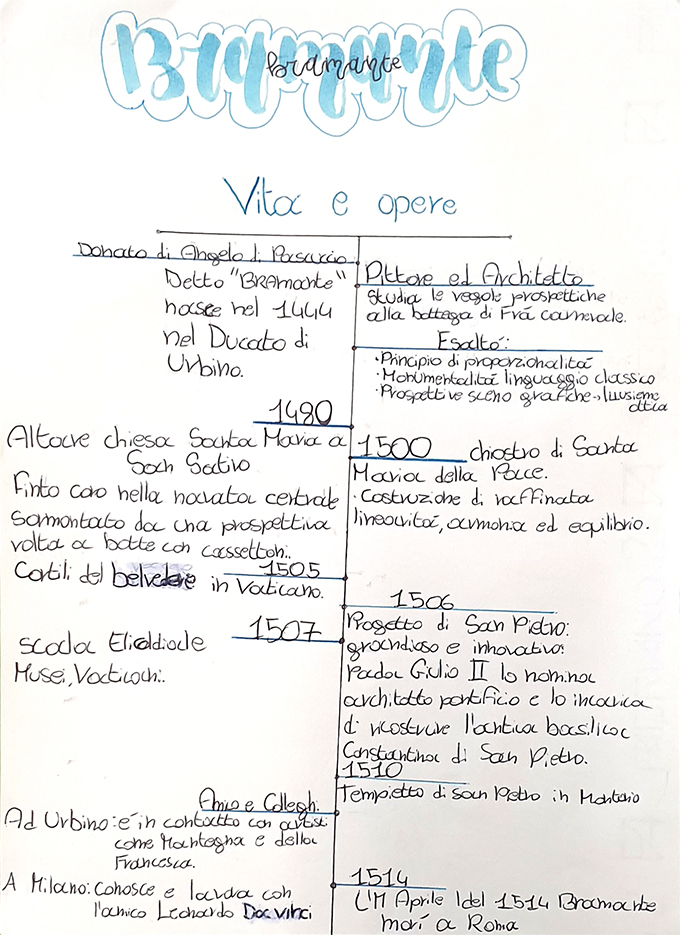 Bramante
bramante
Vita e opere
Donato di Angelo di Pascuccio
Detto "BRAMANTE"
nasce nel 1444
nel Ducato di
Urbino.
Pittore ed Architetto
Studia le regole prospettiche
alla bottega di Frá carnevale.
Esaltó:
·Principio di proporzionalitá
·Monumentalitá linguaggio classico
·Prospettive sceno grafiche→ Illusione
ottica
1480
Altare chiesa Santa Maria a
San Satiro
Finto coro nella navata centrale
sormontato da una prospettiva
volta a botte con cassettoni.
1500 chiostro di Santa
Maria della Pace.
·Costruzione di raffinata
linearitá, armonia ed equilibrio.
1505
Cortili del belvedere in Vaticano.
1506
Progetto di San Pietro:
grandioso e innovativo:
Giulio II lo nomina
architetto pontificio e lo incarica
di ricostruire l'antica basilica
Constantina di San Pietro.
1507
scala Elicoidale
Musei, Vaticani.
1510
Tempietto di san Pietro in Montorio
Amici e Colleghi.
Ad Urbino: é in contatto con artisti
come Mantegna e della
Francesca.
A Milano: conosce e lavora con
l'amico Leonardo Da vinci
1514
L'11 Aprile del 1514 Bramante
morí a Roma